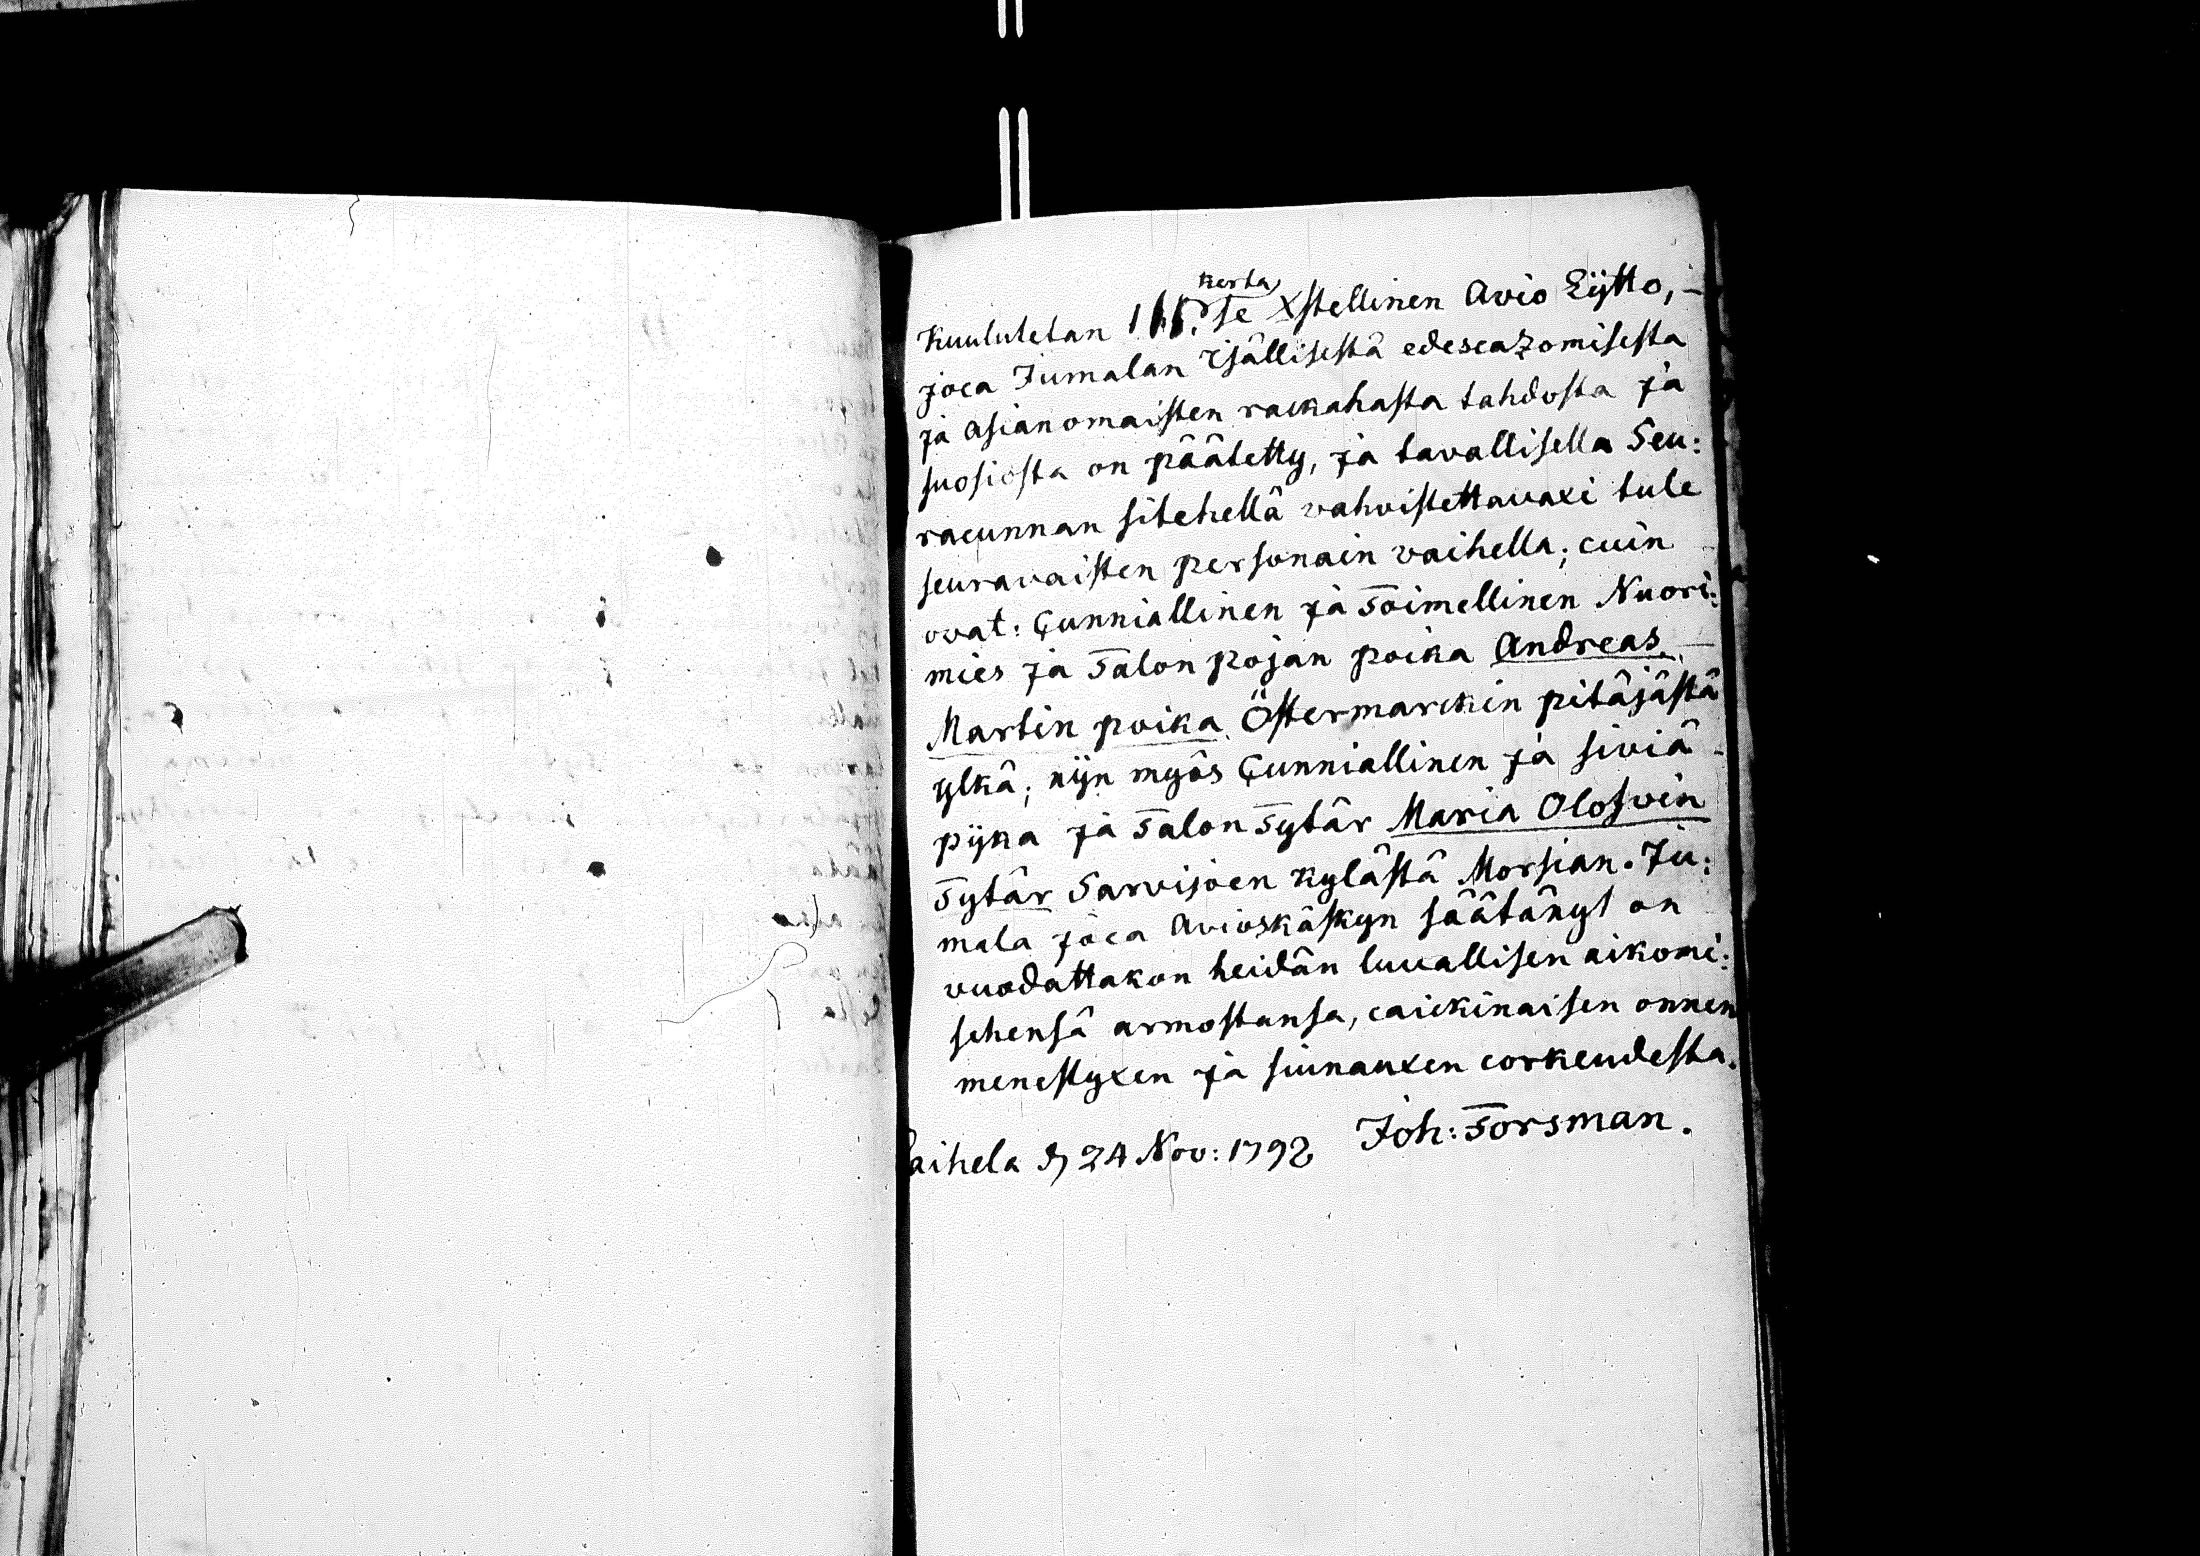 kerta
Kuulutetan se Xstellinen Avio Lijtto, -
joca Jumalan Isällisestä edescazomisesta
ja Asianomaisten rackahasta tahdosta ja
suosiosta on päätetty, ja tavallisella Seu:
racunnan sitehellä vahvistettavaxi tule
seuravaisten personain vaihella; cuin
ovat: Cunniallinen ja Toimellinen Nuori:
mies ja Talon pojan poika Andreas
Martin poika Östermarckin pitäjästä
ylkä; nijn myös Cunniallinen ja siviä -
pijka ja Talon Tytär Maria Olofvin
Tytär Sarvijoen kylästä Morsian. Ju:
mala joca Avioskäskyn säätänyt on
vuodattakon heidän luvallisen aikomi:
sehensä armostansa, caickinaisen onnen
menestyxen ja siunauxen corkeudesta.
Laihela d 24 Nov: 1792 Joh: Forsman.